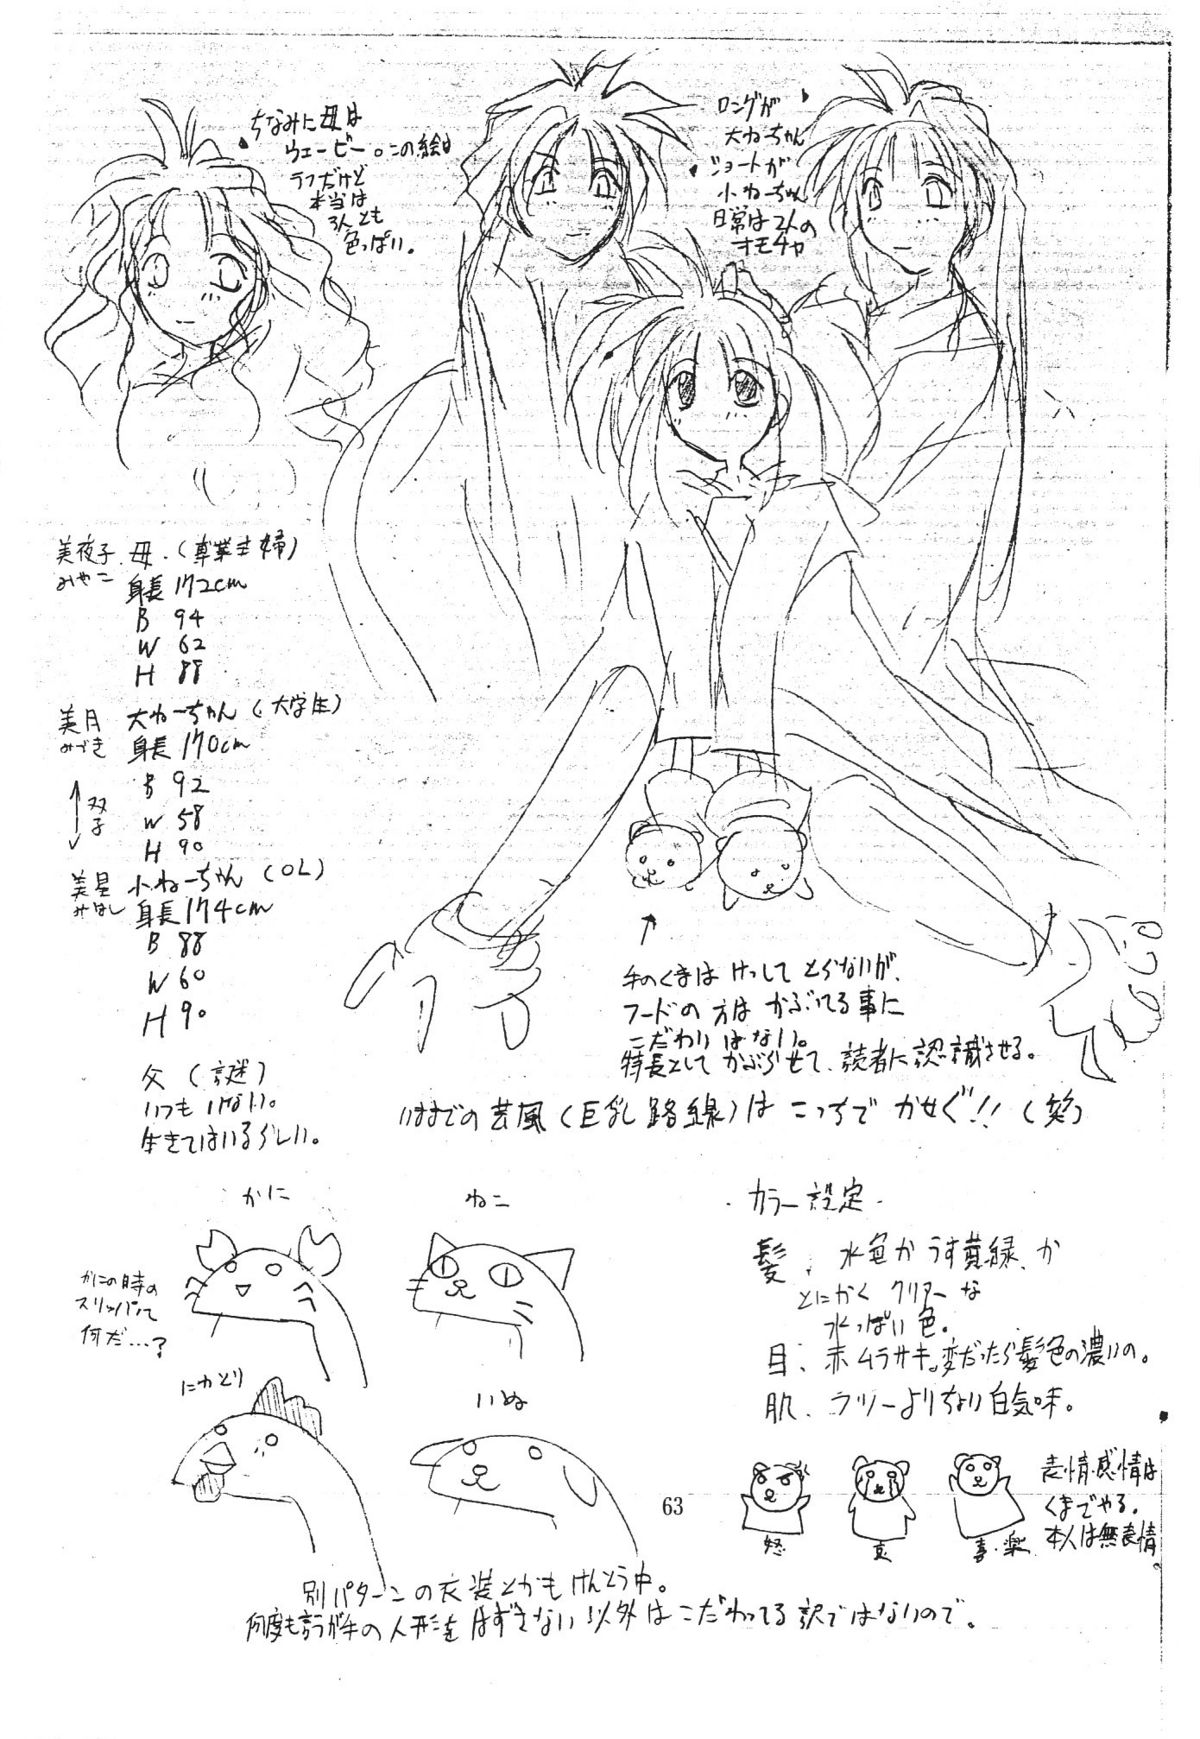 ちなみに母は
ウェービー。この絵は
ラフだけど
本当は
3人とも
色っぱい。
ロングが
大ねーちゃん
ショートが
小ねーちゃん
日常は2人の
オモチャ
美夜子 母.(専業主婦)
みやこ 身長172cm
B 94
W 62
H 88
美月 大ねーちゃん(大学生)
みづき 身長170cm
B 92
W 58
H 90
双子
美星 小ねーちゃん(OL)
みほし 身長174cm
B 88
W 60
H 90
父(謎)
いつもいない。
生きてはいるらしい。
手のくまはけっしてとらないが、
フードの方はかぶってる事に
こだわりはない。
特長としてかぶらせて、読者に認識させる。
いままでの芸風(巨乳路線)はこっちでかせぐ!!(笑)
かに
ねこ
かにの時の
スリッパって
何だ…?
にわとり
いぬ
・カラー設定・
髪、水色かうす黄緑、か
とにかくクリアーな
水っぽい色。
目、赤ムラサキ。変だったら髪色の濃いの。
肌、ラツーよりちょい白気味。
怒
哀
喜・楽
表情・感情は
くまでやる。
本人は無表情
63
別パターンの衣装とかもけんとう中。
何度も言うが手の人形をはずさない以外はこだわってる訳ではないので。